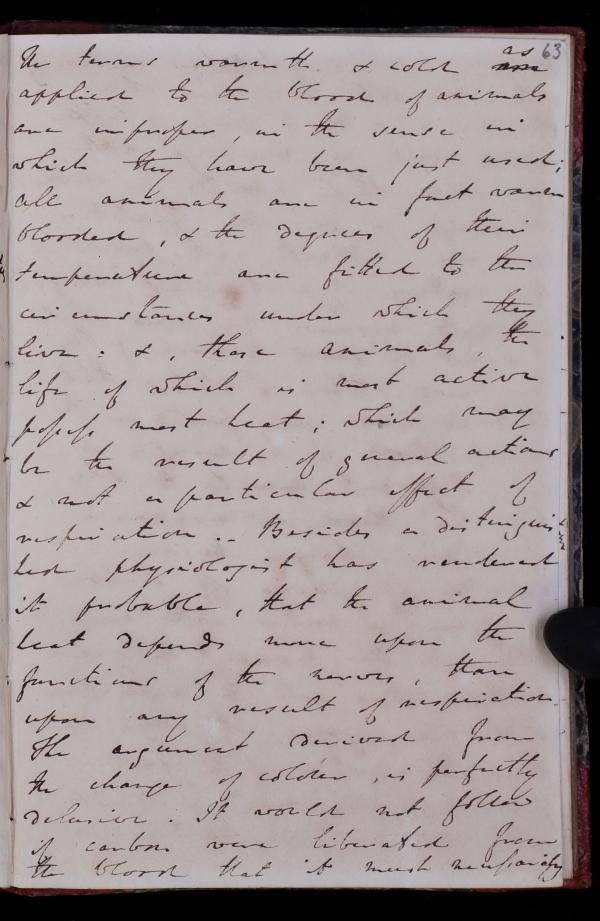 63
The terms warmth & cold as
applied to the blood of animals
are improper, in the sense in
which they have been just used;
all animals are in fact warm
blooded, & the degrees of their
temperature are fitted to the
circumstances under which they
live: &, those animals, the
life of which is most active
possess most heat; which may
be the result of general actions
& not a particular effect of
respiration. - Besides a distinguis
hed physiologist has rendered
it probable, that the animal
heat depends more upon the
functions of the nerves, than
upon any result of respiration.
The argument derived from
the change of colour, is perfectly
delusive. It would not follow
if carbon were liberated from
the blood that it must necessarily